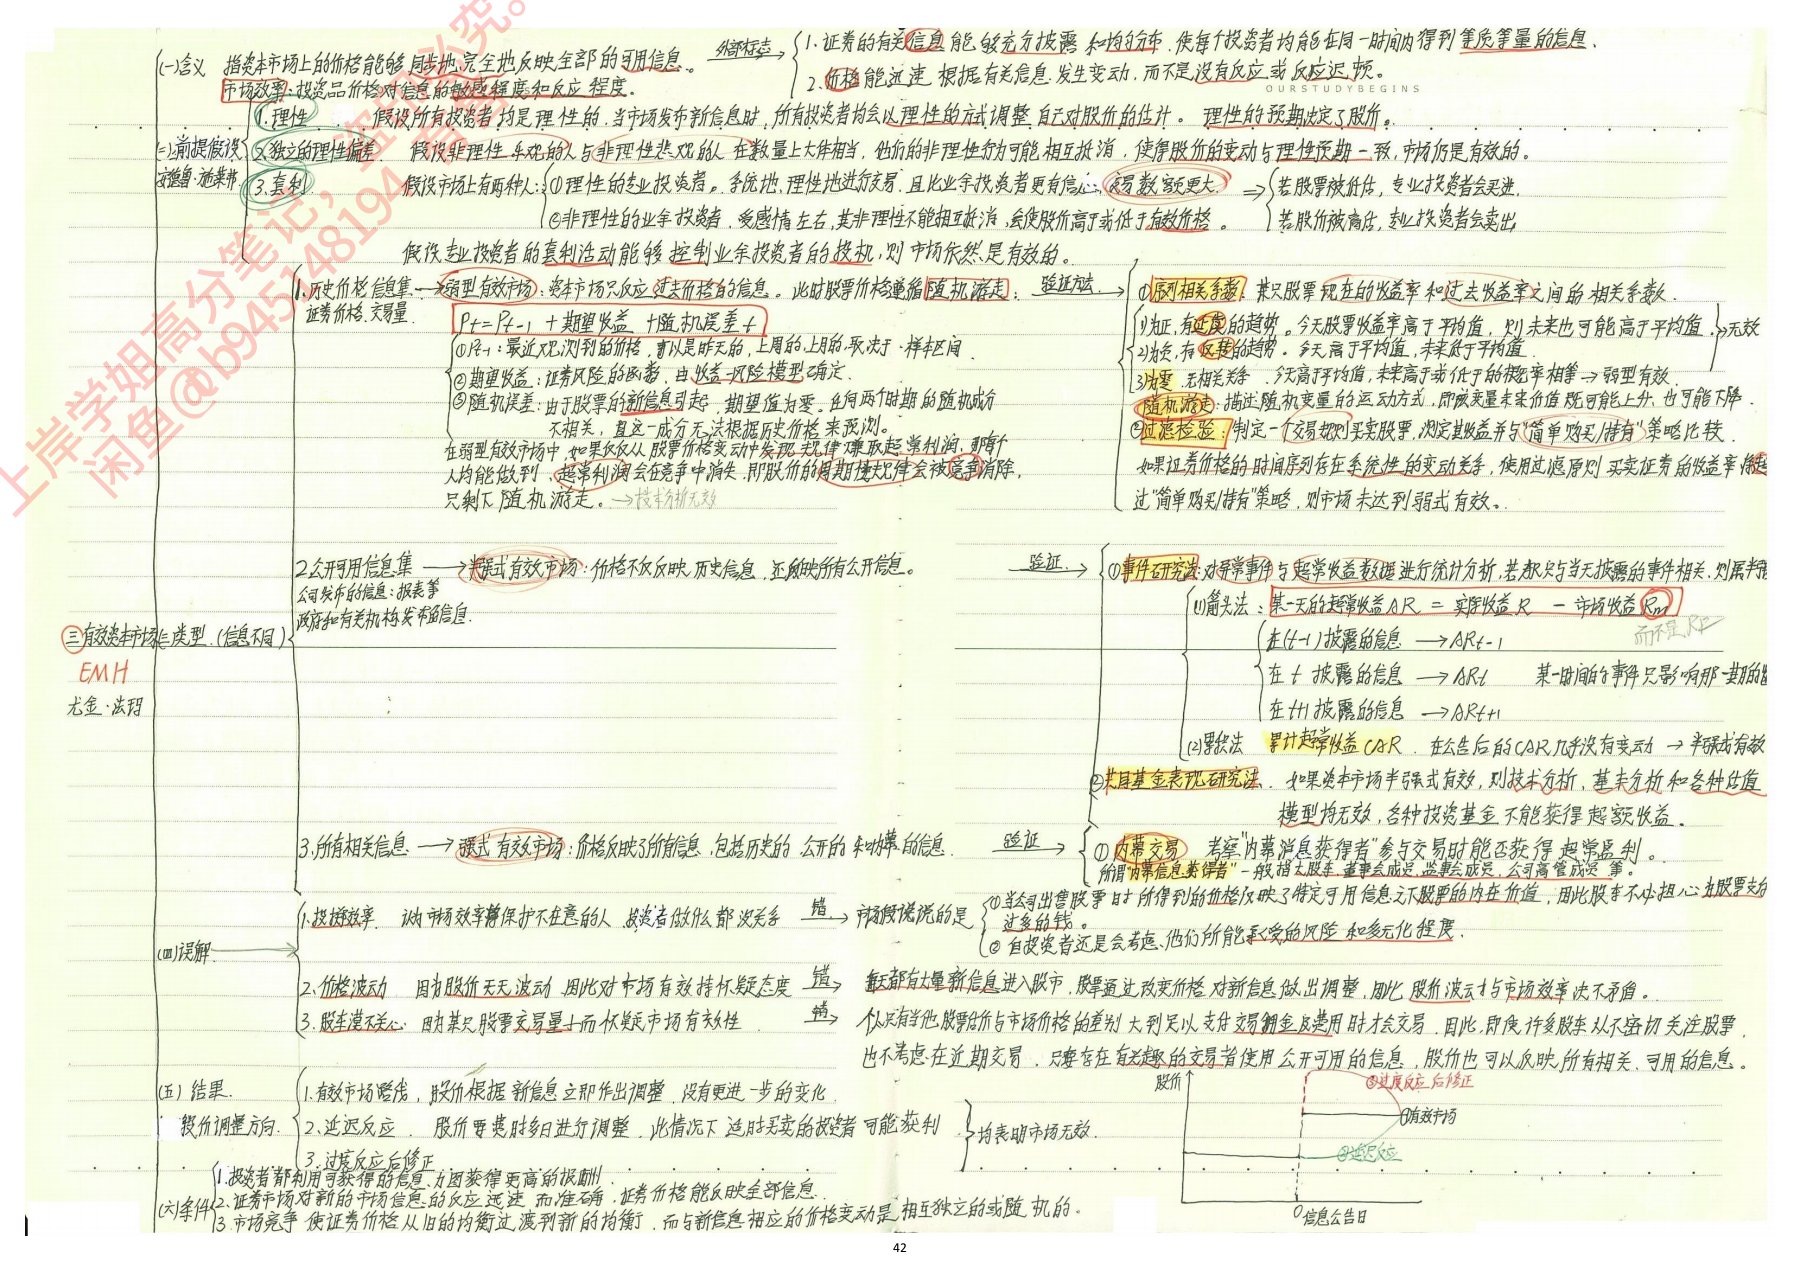 (一)含义 指资本市场上的价格能够同步地、完全地反映全部的可用信息。
市场效率：投资品价格对信息的敏感程度和反应程度。
外部标志
1. 证券的有关信息能够充分披露和均匀分布，使每个投资者均能在同一时间内得到等质等量的信息.
2. 价格能迅速根据有关信息发生变动，而不是没有反应或反应迟顿。
OURSTUDYBEGINS
(二)前提假设
安德鲁·施莱弗
1. 理性 假设所有投资者均是理性的，当市场发布新信息时，所有投资者均会以理性的方式调整自己对股价的估计。 理性的预期决定了股价。
2. 独立的理性偏差 假设非理性乐观的人与非理性悲观的人在数量上大体相当，他们的非理性行为可能相互抵消，使得股价的变动与理性预期一致，市场仍是有效的。
3. 套利 假设市场上有两种人：①理性的专业投资者。系统地、理性地进行交易，且比业余投资者更有信心，交易数额更大.
若股票被低估，专业投资者会买进.
②非理性的业余投资者。受感情左右，其非理性不能相互抵消，会使股价高于或低于有效价格。
若股价被高估，专业投资者会卖出
假设专业投资者的套利活动能够控制业余投资者的投机，则市场依然是有效的。
(三)有效资本市场三类型.(信息不同)
EMH
尤金·法玛
1. 历史价格信息集 → 弱型有效市场：资本市场只反应过去价格的信息。此时股票价格遵循随机游走：
证券价格、交易量
Pt=Pt-1 +期望收益 +随机误差t
①Pt-1：最近观测到的价格，可以是昨天的，上周的、上月的、取决于样本区间
②期望收益：证券风险的函数，由收益-风险模型确定.
③随机误差：由于股票的新信息引起，期望值为零。任何两个时期的随机成分
不相关，且这一成分无法根据历史价格来预测。
在弱型有效市场中，如果仅仅从股票价格变动中发现规律赚取超常利润，那每个
人均能做到，超常利润会在竞争中消失，即股价的周期性规律会被竞争消除，
只剩下随机游走。→技术分析无效
验证方法
①序列相关系数：某只股票现在的收益率和过去收益率之间的相关系数.
1)为正，有延续的趋势。今天股票收益率高于平均值，则未来也可能高于平均值
2)为负，有反转的趋势。今天高于平均值，未来低于平均值
无效
3)为零 无相关关系 今天高于平均值，未来高于或低于的概率相等→弱型有效.
随机游走：描述随机变量的运动方式，即该变量未来价值既可能上升，也可能下降.
②过滤检验：制定一个交易规则买卖股票，测定其收益并与"简单购买/持有"策略比较.
如果证券价格的时间序列存在系统性的变动关系，使用过滤原则买卖证券的收益率将超
过"简单购买/持有"策略，则市场未达到弱式有效。
2. 公开可用信息集 → 半强式有效市场：价格不仅反映历史信息，还反映所有公开信息。
公司发布的信息：报表等
政府和有关机构发布的信息.
验证
①事件研究法：对异常事件与超常收益数据进行统计分析，若都只与当天披露的事件相关，则属半强
(1)箭头法：某一天的超常收益AR = 实际收益R - 市场收益Rm
而不是RF
在(t-1)披露的信息 → ARt-1
在 t 披露的信息 → ARt 某一时间的事件只影响那一期的
在t+1披露的信息 → ARt+1
(2)累积法 累计超常收益CAR. 在公告后的CAR几乎没有变动→半强式有效
②共同基金表现研究法. 如果资本市场半强式有效，则技术分析，基本分析和各种估值
模型均无效，各种投资基金不能获得超额收益。
3. 所有相关信息 → 强式有效市场：价格反映了所有信息，包括历史的 公开的 和内幕的信息.
验证
①内幕交易 考察"内幕消息获得者"参与交易时能否获得超常盈利。
所谓"内幕信息获得者"一般指大股东、董事会成员，监事会成员，公司高管成员等。
(四)误解
1. 投掷效率 认为市场效率将保护不在意的人 投资者做什么都没关系 错→ 市场假说说的是
①当公司出售股票时所得到的价格仅映了特定可用信息之下股票的内在价值，因此股东不必担心为股票支付
过多的钱。
②但投资者还是会考虑他们所能承受的风险和多元化程度.
2. 价格波动 因为股价天天波动，因此对市场有效持怀疑态度 错→ 每天都有大量新信息进入股市，股票通过改变价格对新信息做出调整，因此，股价波动与市场效率决不矛盾。
3. 股东漠不关心 因为某只股票交易量少而怀疑市场有效性 错→ 个人只有当他股票估价与市场价格的差别大到足以支付交易佣金及费用时才会交易. 因此，即使许多股东从不密切关注股票，
也不考虑在近期交易，只要存在有兴趣的交易者使用公开可用的信息，股价也可以反映所有相关、可用的信息。
(五) 结果.
股价调整方向.
1. 有效市场路线，股价根据新信息立即作出调整，没有更进一步的变化
2. 延迟反应. 股价要某时多日进行调整，此情况下适时买卖的投资者可能获利
3. 过度反应后修正
均表明市场无效.
股价
③过度反应后修正
①有效市场
②延迟反应
0 信息公告日
(六)条件
1. 投资者都利用可获得的信息力图获得更高的报酬.
2. 证券市场对新的市场信息的反应迅速而准确，证券价格能反映全部信息.
3. 市场竞争使证券价格从旧的均衡过渡到新的均衡，而与新信息相应的价格变动是相互独立的或随机的。
上岸学姐高分笔记，盗版必究。
闲鱼@b945148194
42